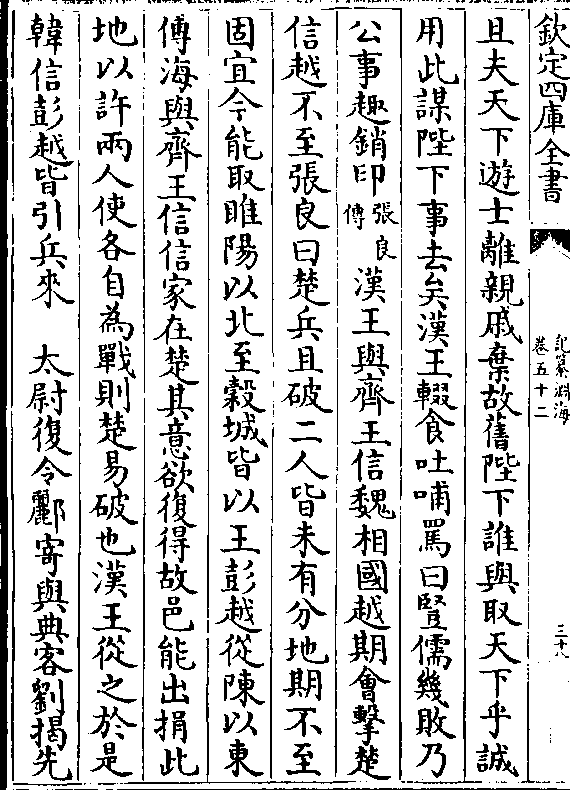 欽定四庫全書
記纂淵海
卷五十二
三十八
且夫天下遊士離親戚棄故舊陛下誰與取天下乎誠
用此謀陛下事去矣漢王輟食吐哺罵曰豎儒幾敗乃
公事趣銷印張良傳漢王與齊王信魏相國越期會擊楚
信越不至張良曰楚兵且破二人皆未有分地期不至
固宜今能取睢陽以北至穀城皆以王彭越從陳以東
傅海與齊王信信家在楚其意欲復得故邑能出捐此
地以許兩人使各自為戰則楚易破也漢王從之於是
韓信彭越皆引兵來 太尉復令酈寄與典客劉揭先